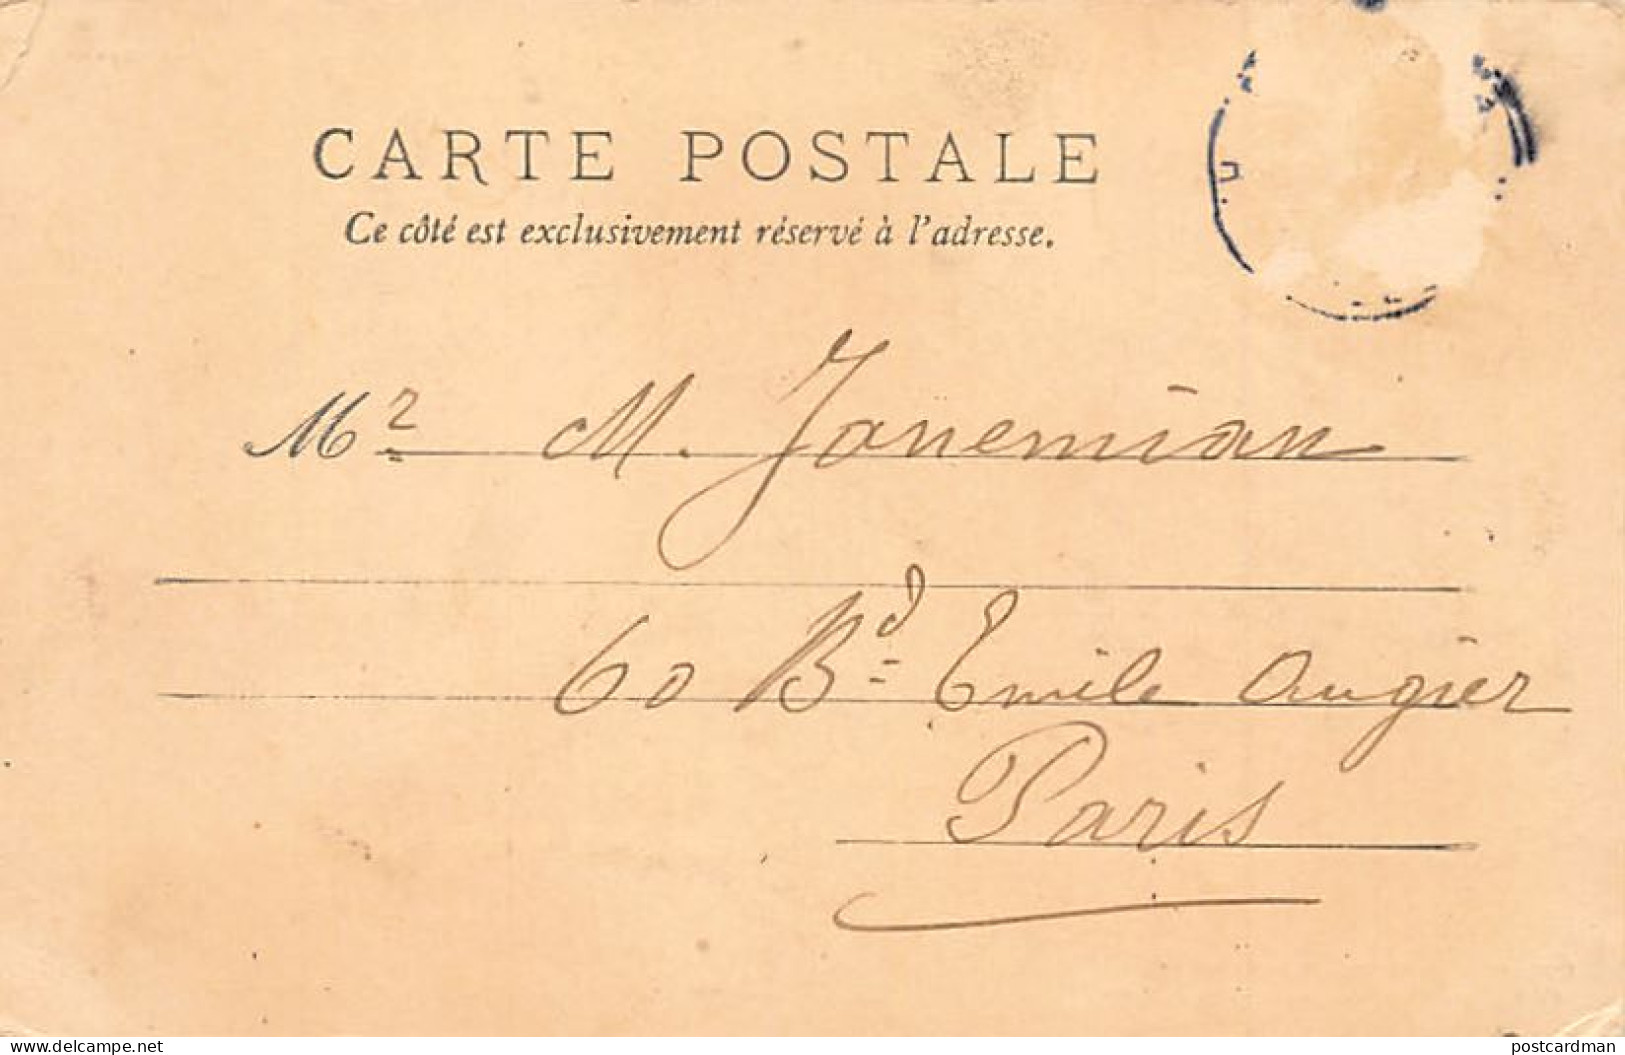 CARTE POSTALE
Ce côté est exclusivement réservé à l'adresse.
Mr M. Janemian
60 Bd Emile Augier
Paris
delcampe.net
postcardman